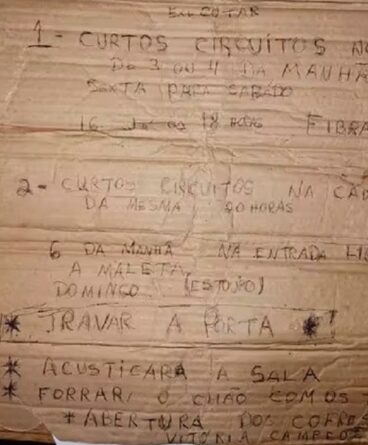 EXECUTAR
1 - CURTOS CIRCUÍTOS N
DE 3 OU 4 DA MANHÃ
SEXTA PARA SABADO
16 18 HORAS FIBRA
2 - CURTOS CIRCUITOS NA
DA MESMA 20 HORAS
6 DA MANHÃ NA ENTRADA
A MALETA
DOMINGO (ESTOJO)
* TRAVAR A PORTA *!
* ACUSTICARA A SALA
* FORRAR O CHÃO COM OS
* ABERTURA DOS COFRES
VITORIA